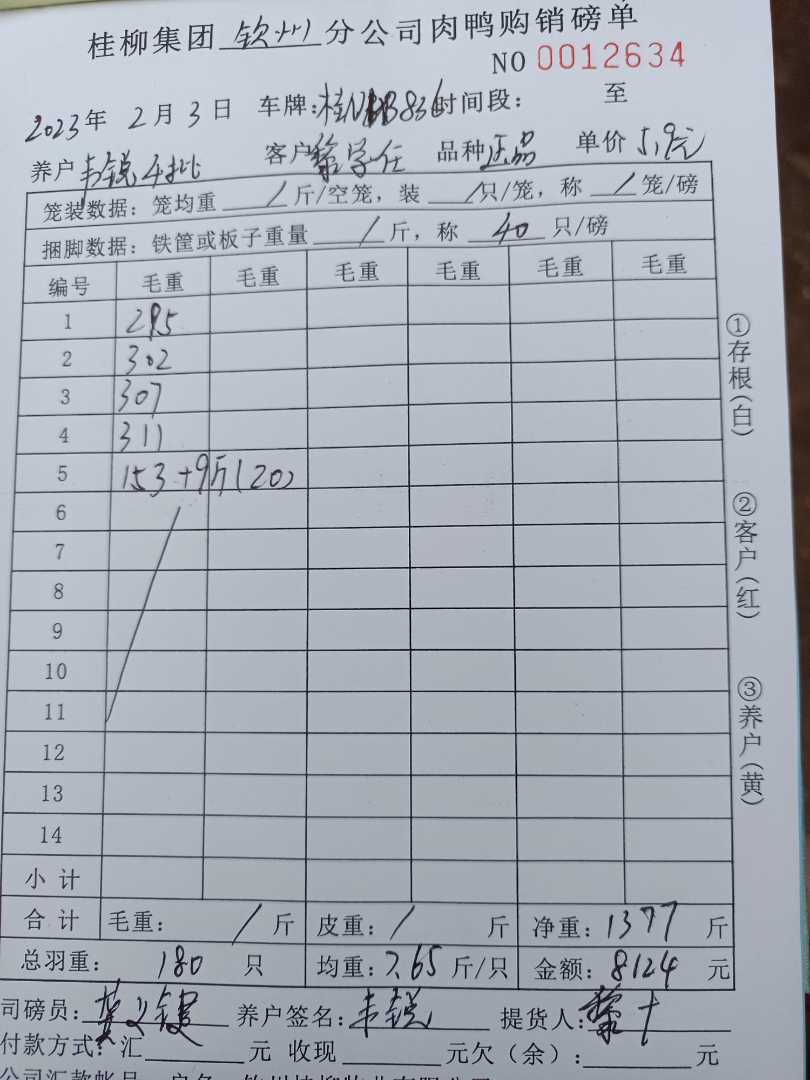 桂柳集团 钦州 分公司肉鸭购销磅单
NO 0012634
2023年 2月 3日 车牌:桂N 836 时间段: 至
养户 韦锐 4批 客户 黎学任 品种 正品 单价 5.9元
笼装数据: 笼均重 / 斤/空笼, 装 / 只/笼, 称 / 笼/磅
捆脚数据: 铁筐或板子重量 / 斤, 称 40 只/磅
编号 毛重 毛重 毛重 毛重 毛重 毛重
1 295
2 302
3 307
4 311
5 153+9斤(20)
6
7
8
9
10
11
12
13
14
小计
合计 毛重: / 斤 皮重: / 斤 净重: 1377 斤
总羽重: 180 只 均重: 7.65 斤/只 金额: 8124 元
司磅员: 养户签名: 韦锐 提货人: 黎
付款方式: 汇 元 收现 元欠(余): 元
①存根(白)
②客户(红)
③养户(黄)